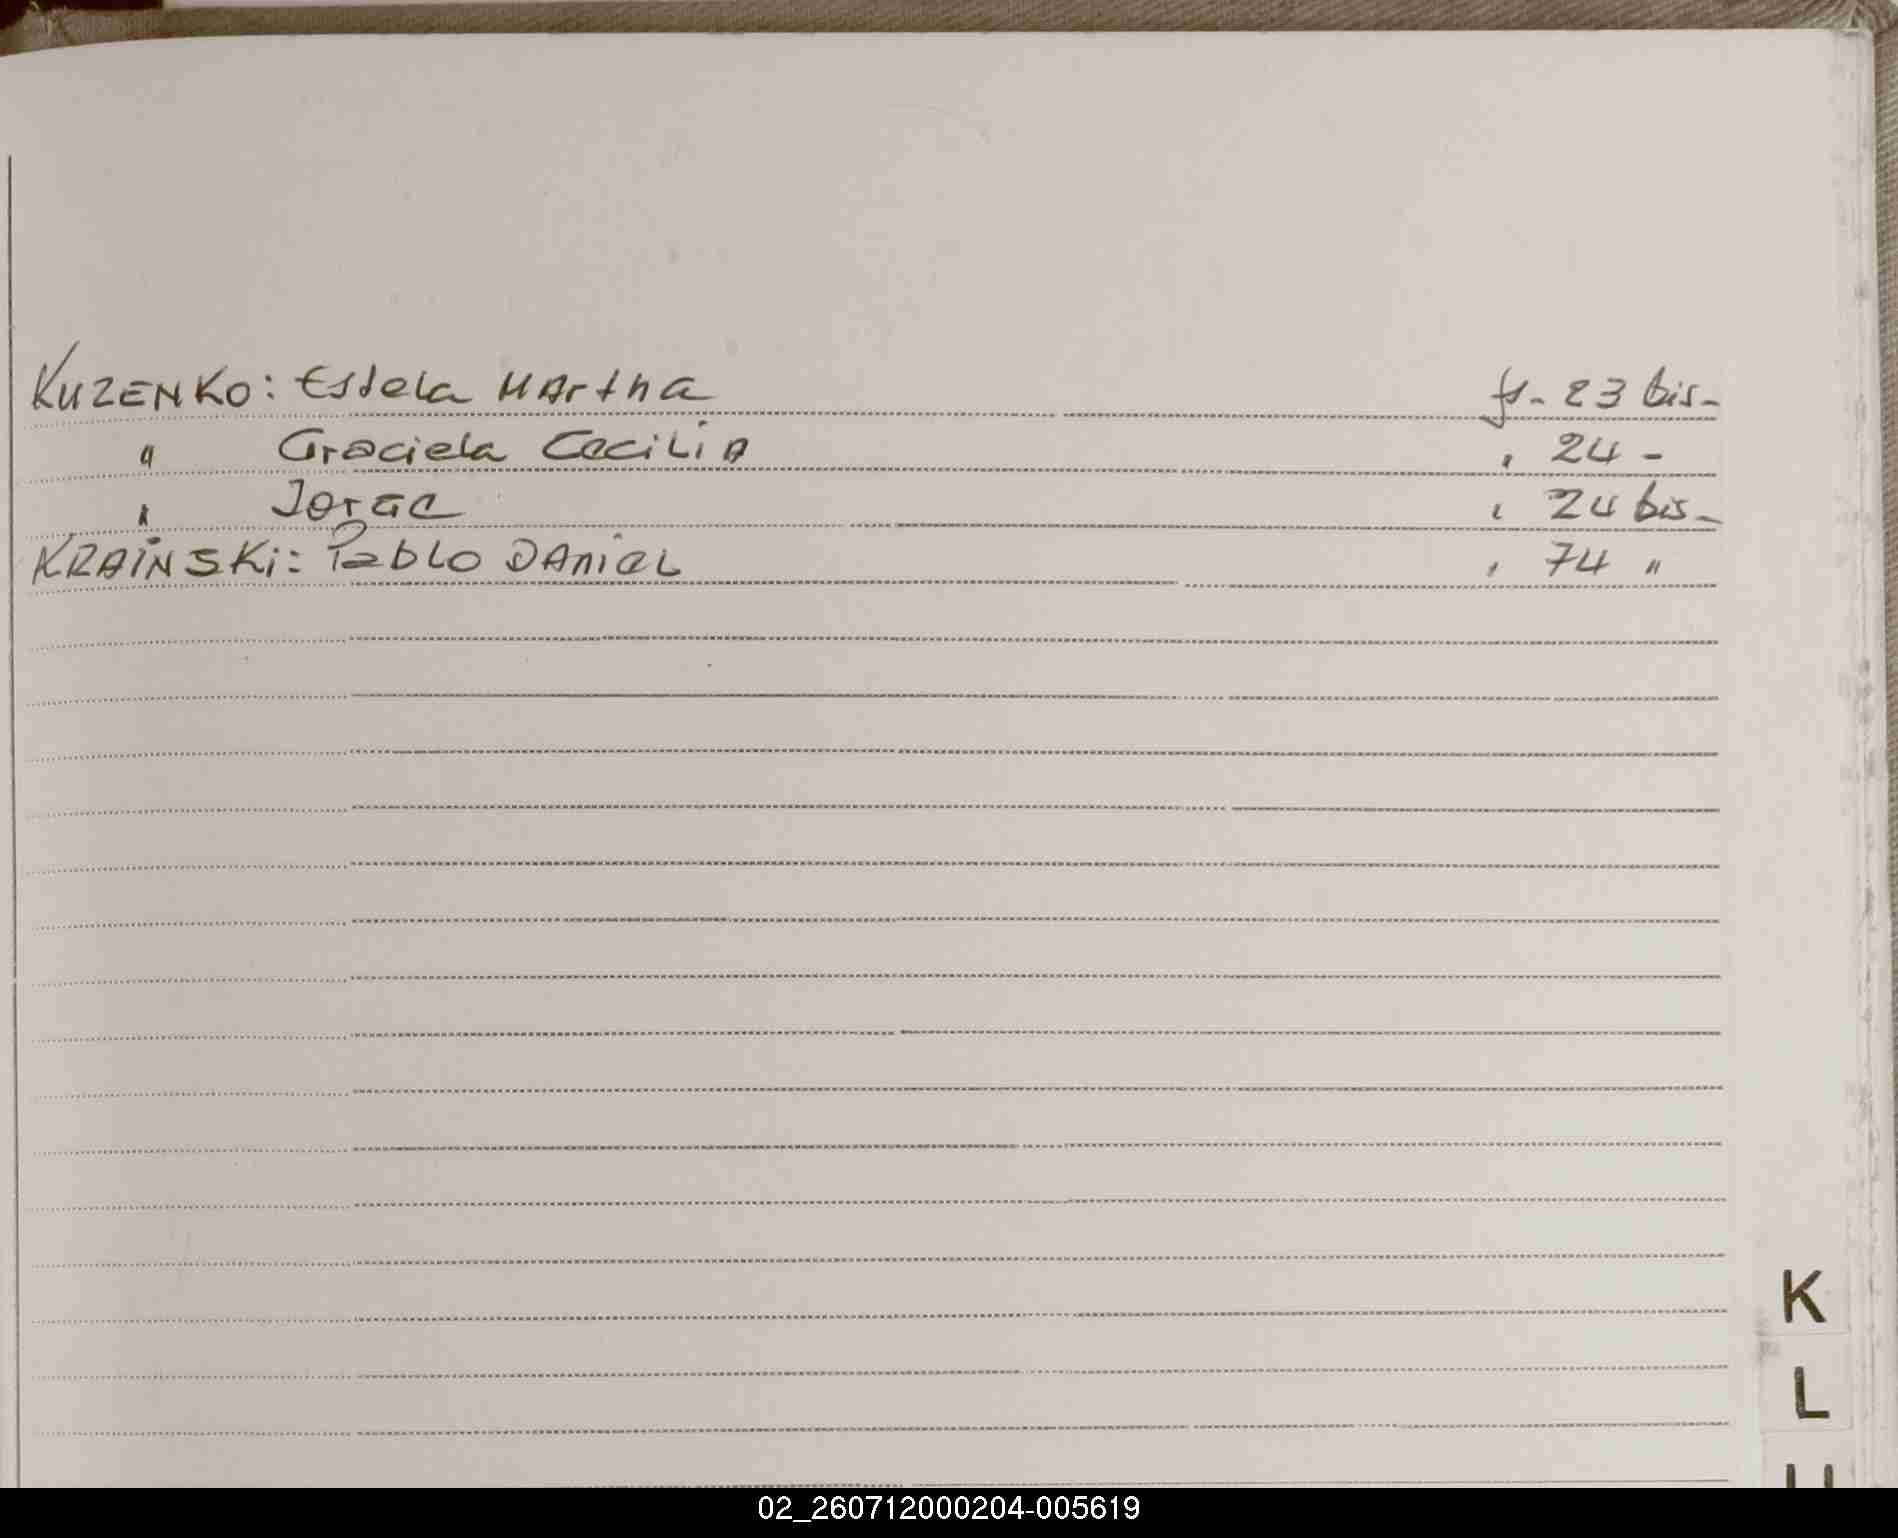 KUZENKO: Estela Martha fs. 23 bis-
" Graciela Cecilia " 24 -
" Jorge " 24 bis-
KRAINSKI: Pablo Daniel " 74 "
K
L
02_260712000204-005619